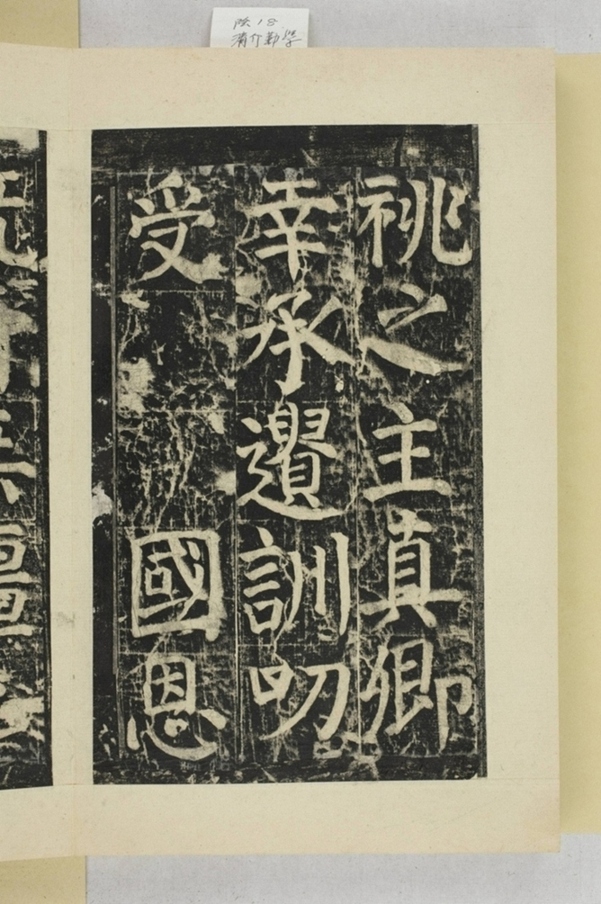 清介勤学
祧之主真卿
幸承遺訓叨
受 國恩